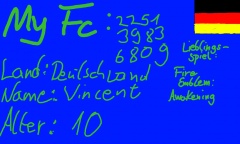 My Fc: 2251
3983
6809
Lieblings-
spiel:
Fire
Emblem:
Awakening
Land: Deutschland
Name: Vincent
Alter: 10